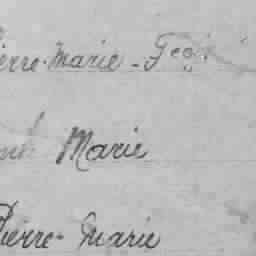 Pierre-Marie - Feg
Marie
Pierre-Marie